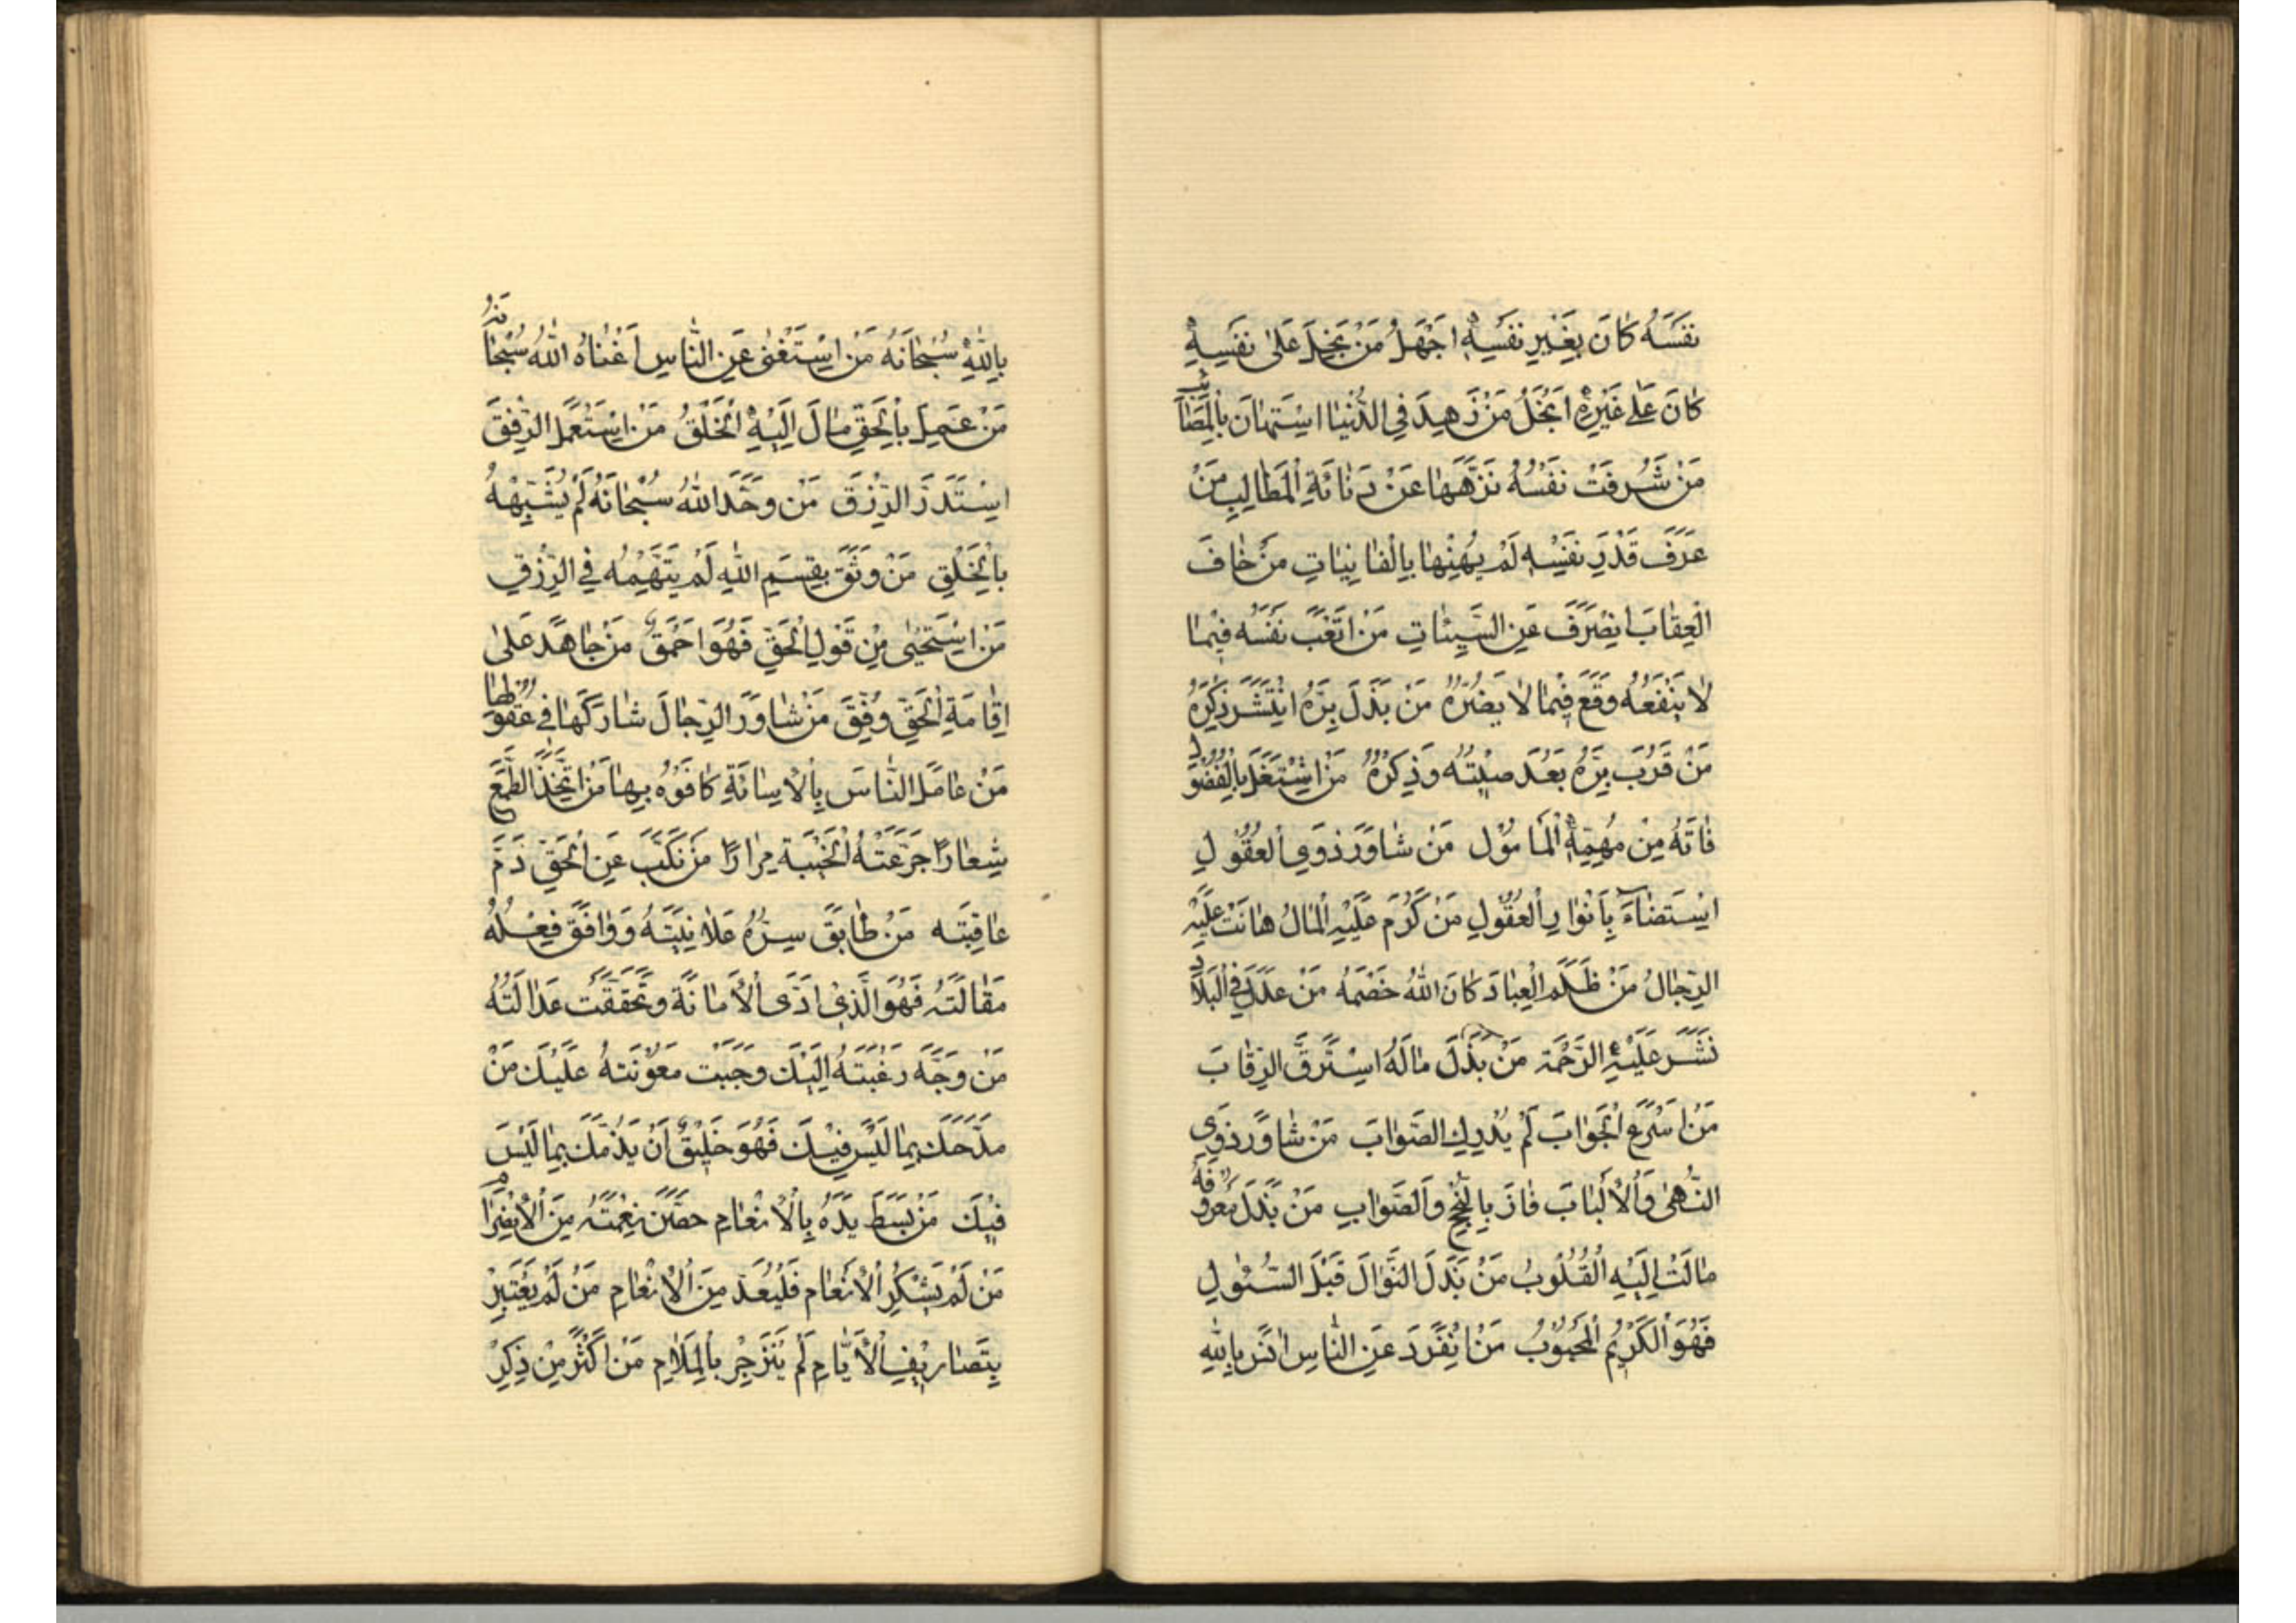 نَفْسَهُ كَانَ بِغَيْرِ نَفْسِهِ اَجْهَلُ مَنْ بَخِلَ عَلىٰ نَفْسِهِ
كَانَ عَلىٰ غَيْرِهِ اَبْخَلُ مَنْ زَهِدَ فِي الدُّنْيَا اسْتَهَانَ بِالْمَصَائِب
مَنْ شَرُفَتْ نَفْسُهُ نَزَّهَهَا عَنْ دَنَائَةِ الْمَطَالِبِ مَنْ
عَرَفَ قَدْرَ نَفْسِهِ لَمْ يُهِنْهَا بِالْفَانِيَاتِ مَنْ خَافَ
الْعِقَابَ انْصَرَفَ عَنِ السَّيِّئَاتِ مَنْ اَتْعَبَ نَفْسَهُ فِيمَا
لَا يَنْفَعُهُ وَقَعَ فِيمَا لَا يَضُرُّهُ مَنْ بَذَلَ بِرَّهُ انْتَشَرَ ذِكْرُهُ
مَنْ قَرُبَ بِرُّهُ بَعُدَ صِيتُهُ وَذِكْرُهُ مَنِ اشْتَغَلَ بِالْفُضُول
فَاتَهُ مِنْ مُهِمِّهِ الْمَامُول مَنْ شَاوَرَ ذَوِي الْعُقُولِ
اسْتَضَاءَ بِاَنْوَارِ الْعُقُولِ مَنْ كَرُمَ عَلَيْهِ الْمَالُ هَانَتْ عَلَيْهِ
الرِّجَالُ مَنْ ظَلَمَ الْعِبَادَ كَانَ اللهُ خَصْمَهُ مَنْ عَدَلَ فِي الْبِلَاد
نَشَرَ عَلَيْهِ الرَّحْمَةَ مَنْ بَذَلَ مَالَهُ اسْتَرَقَّ الرِّقَابَ
مَنْ اَسْرَعَ الْجَوَابَ لَمْ يُدْرِكِ الصَّوَابَ مَنْ شَاوَرَ ذَوِي
النُّهىٰ وَالْاَلْبَابَ فَازَ بِالنُّجْحِ وَالصَّوَابِ مَنْ بَذَلَ مَعْرُوفَهُ
مَالَتْ اِلَيْهِ الْقُلُوبُ مَنْ بَذَلَ النَّوَالَ قَبْلَ السُّئُولِ
فَهُوَ الْكَرِيمُ الْمَحْبُوبُ مَنْ اِنْفَرَدَ عَنِ النَّاسِ اَنِسَ بِاللهِ
بِاللهِ سُبْحَانَهُ مَنِ اسْتَغْنىٰ عَنِ النَّاسِ اَغْنَاهُ اللهُ سُبْحَانَهُ
مَنْ عَمِلَ بِالْحَقِّ مَالَ اِلَيْهِ الْخَلْقُ مَنِ اسْتَعْمَلَ الرِّفْقَ
اسْتَدَرَّ الرِّزْقَ مَنْ وَحَّدَ اللهَ سُبْحَانَهُ لَمْ يُشَبِّهْهُ
بِالْخَلْقِ مَنْ وَثِقَ بِقِسَمِ اللهِ لَمْ يَتَّهِمْهُ فِي الرِّزْقِ
مَنِ اسْتَحْيىٰ مِنْ قَوْلِ الْحَقِّ فَهُوَ اَحْمَقُ مَنْ جَاهَدَ عَلىٰ
اِقَامَةِ الْحَقِّ وُفِّقَ مَنْ شَاوَرَ الرِّجَالَ شَارَكَهَا فِي عُقُولِهَا
مَنْ عَامَلَ النَّاسَ بِالْاِسَائَةِ كَافَوْهُ بِهَا مَنِ اتَّخَذَ الطَّمَعَ
شِعَارًا جَرَّعَتْهُ الْخَيْبَةُ مِرَارًا مَنْ نَكَبَ عَنِ الْحَقِّ ذَمَّ
عَاقِبَتَه مَنْ طَابَقَ سِرُّهُ عَلَانِيَتَهُ وَوَافَقَ فِعْلُهُ
مَقَالَتَهُ فَهُوَ الَّذِي اَدَّى الْاَمَانَةَ وَتَحَقَّقَتْ عَدَالَتُهُ
مَنْ وَجَّهَ رَغْبَتَهُ اِلَيْكَ وَجَبَتْ مَعُونَتُهُ عَلَيْكَ مَنْ
مَدَحَكَ بِمَا لَيْسَ فِيكَ فَهُوَ خَلِيقٌ اَنْ يَذُمَّكَ بِمَا لَيْسَ
فِيكَ مَنْ بَسَطَ يَدَهُ بِالْاِنْعَامِ حَصَّنَ نِعْمَتَهُ مِنَ الْاِنْصِرَام
مَنْ لَمْ يَشْكُرِ الْاِنْعَامَ فَلْيُعَدَّ مِنَ الْاَنْعَامِ مَنْ لَمْ يَعْتَبِرْ
بِتَصَارِيفِ الْاَيَّامِ لَمْ يَنْزَجِرْ بِالْمَلَامِ مَنْ اَكْثَرَ مِنْ ذِكْرِ